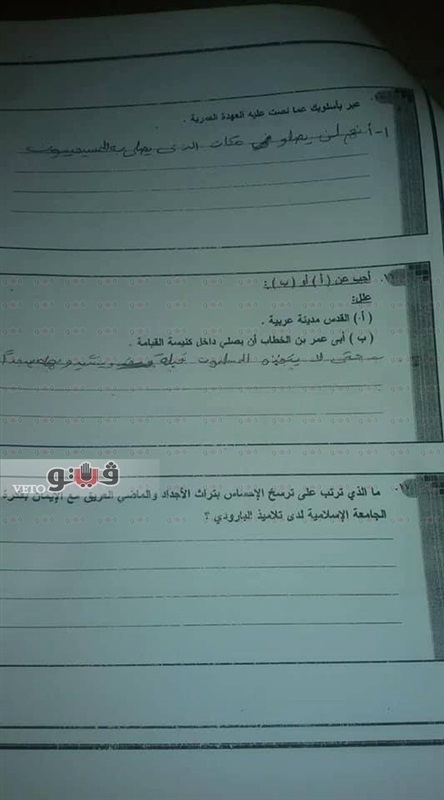 عبر بأسلوبك عما نصت عليه العهدة العمرية .
١- أنهم لن يصلو في مكان الذى يصلى به المسيحيون
أجب عن ( أ ) أو ( ب ) :
علل:
( أ ) القدس مدينة عربية .
( ب ) أبى عمر بن الخطاب أن يصلي داخل كنيسة القيامة .
حتى لا يتخذه المسلمون
ڤيتو
VETO
ما الذي ترتب على ترسخ الإحساس بتراث الأجداد والماضي العريق مع الإيمان بفكرة
الجامعة الإسلامية لدى تلاميذ البارودي ؟